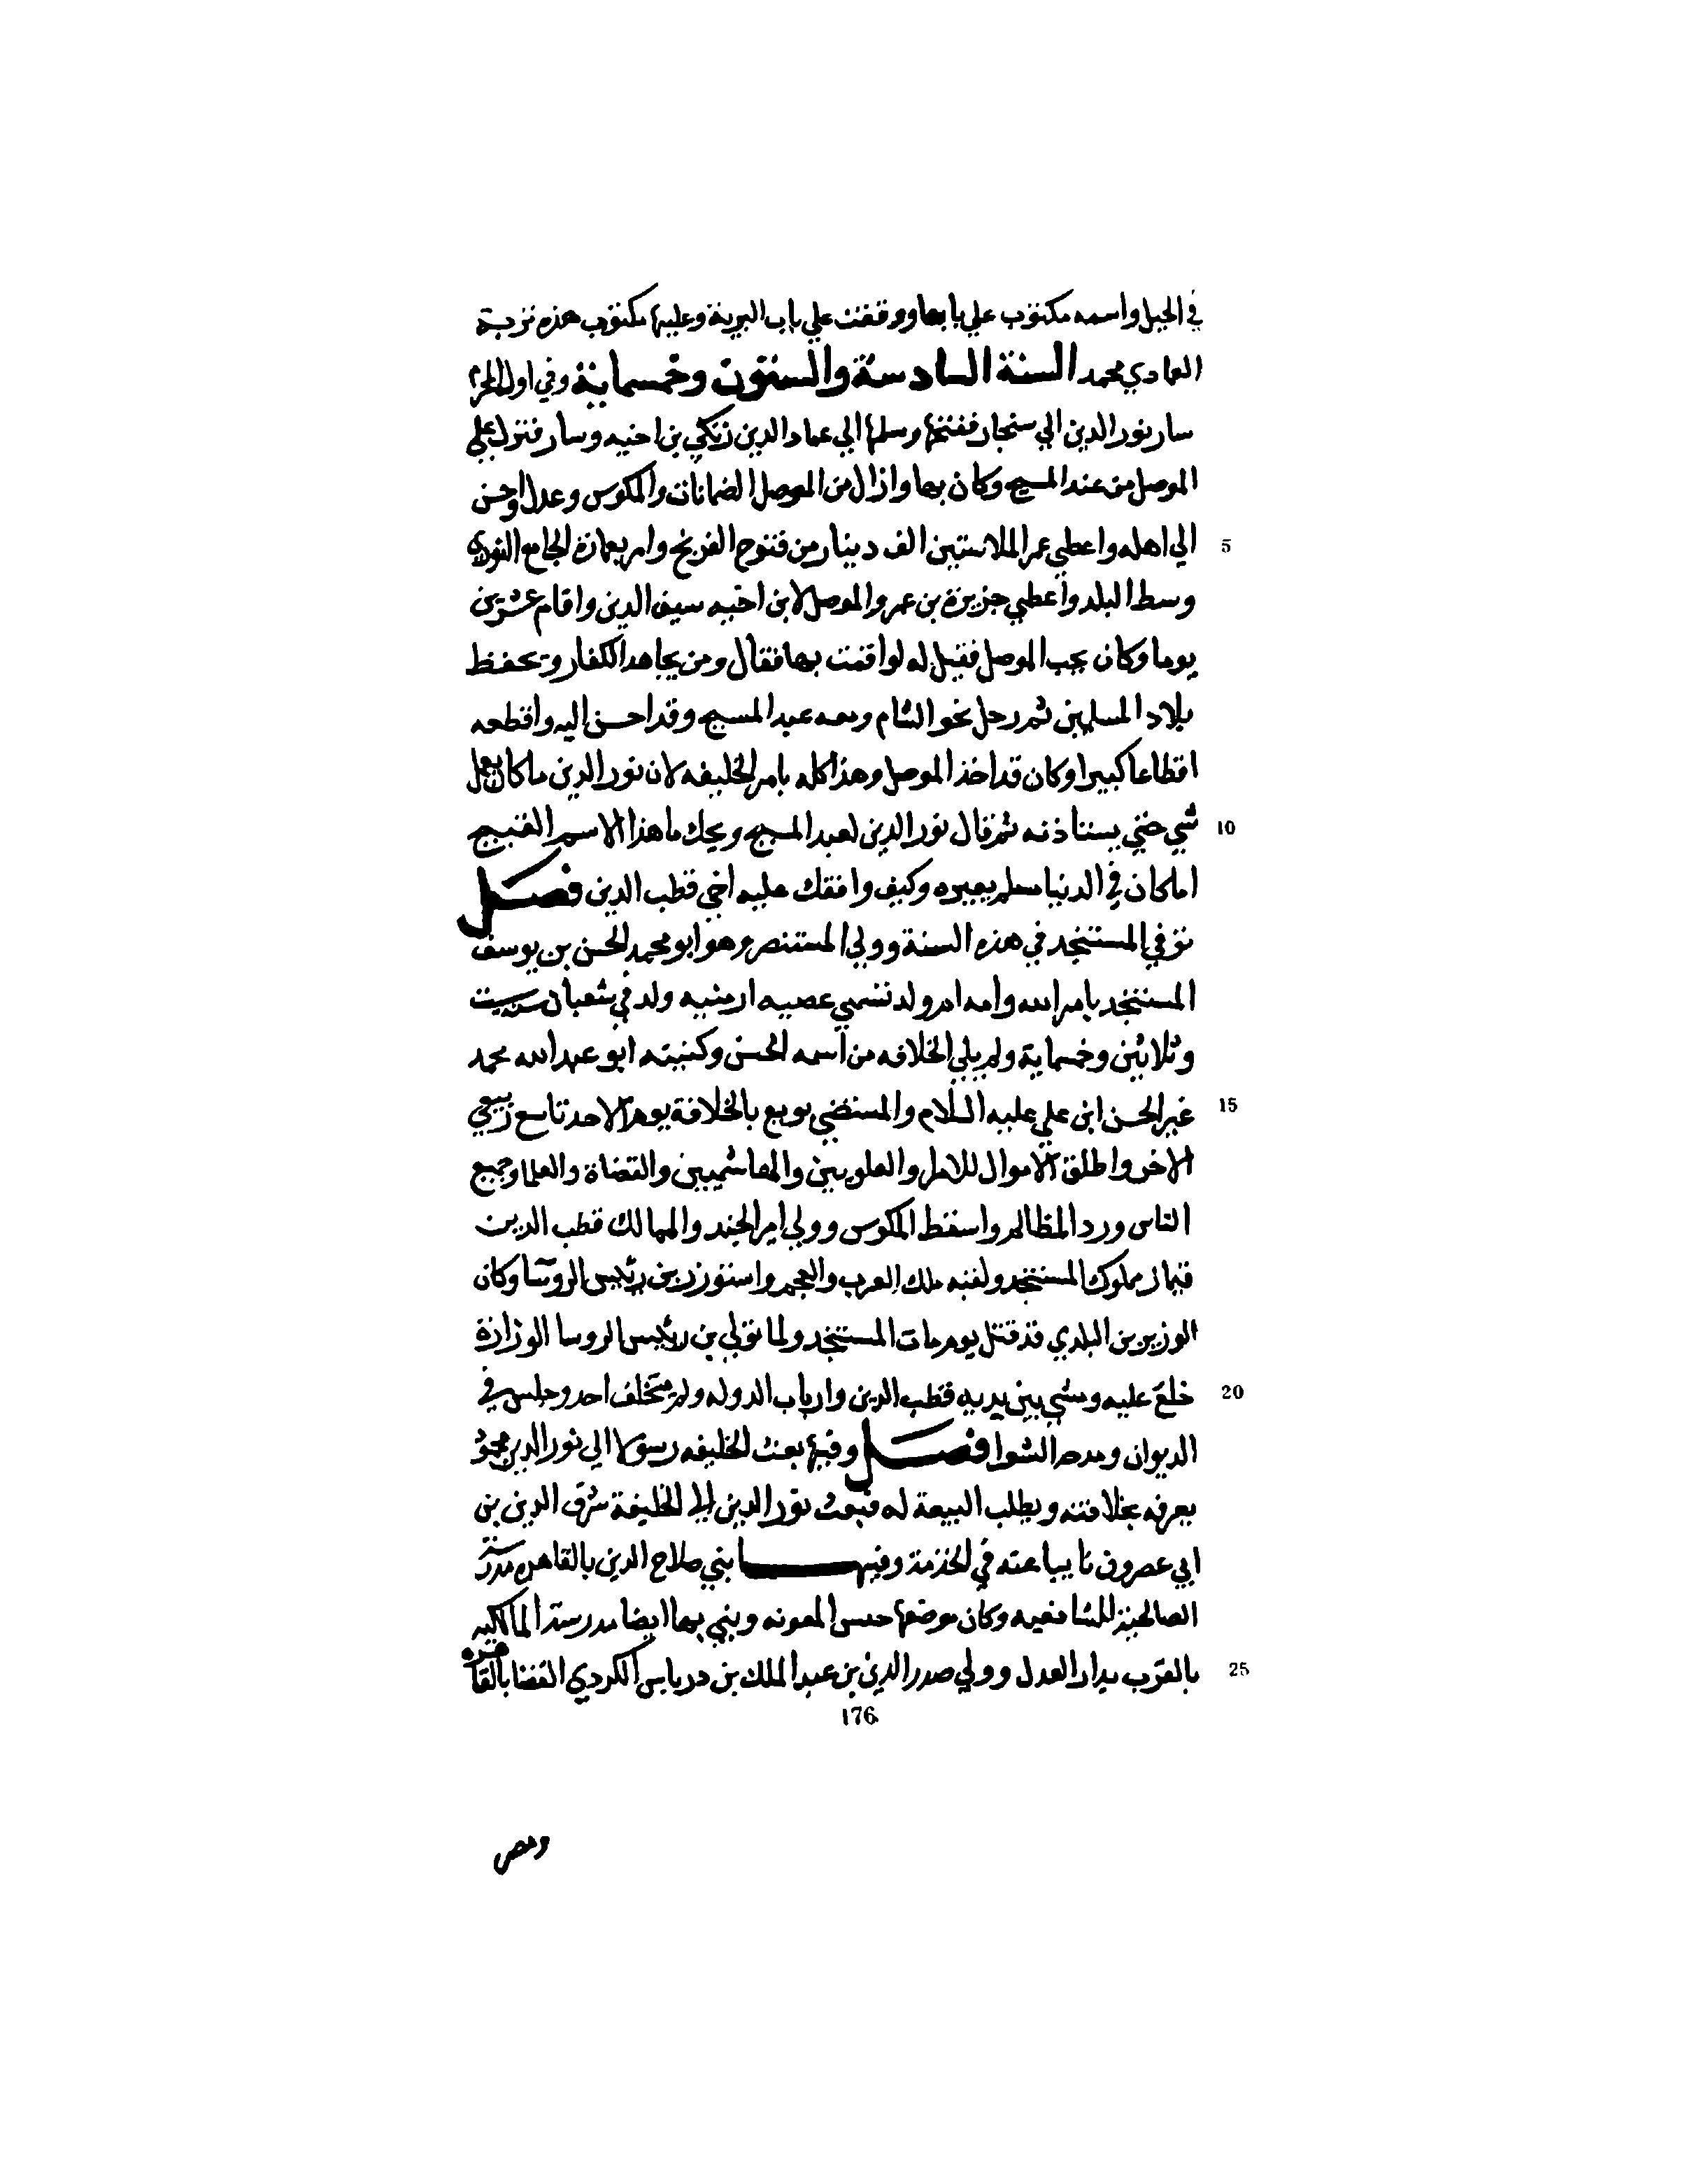 في الجبل واسمه مكتوب علي بابها ووقفت علي باب البرية وعليها مكتوب هذه تربة
العمادي محمد السنة السادسة والستون وخمسماية وفي اول المحرم
سار نور الدين الي سنجار ففتحها وسلمها الي عماد الدين زنكي بن اخيه وسار فنزل علي
الموصل من عند المسيح وكان بها وازال من الموصل الضمانات والمكوس وعدل واحسن
5 الي اهله واعطي عمر الملا ستين الف دينار من فتوح الفرنج وامر بعمارة الجامع النوري
وسط البلد واعطي جزيرة بن عمر والموصل لابن اخيه سيف الدين واقام عشرين
يوما وكان يحب الموصل فقيل له لو اقمت بها فقال ومن يجاهد الكفار ويحفظ
بلاد المسلمين ثم رحل نحو الشام ومعه عبد المسيح وقد احسن اليه واقطعه
اقطاعا كبيرا وكان قد اخذ الموصل وهذا كله بامر الخليفه لان نور الدين ما كان يعمل
10 شي حتي يستاذنه ثم قال نور الدين لعبد المسيح ويحك ما هذا الاسم القبيح
اما كان في الدنيا مسلم يعيره وكيف وافقك عليه اخي قطب الدين فصل
توفي المستنجد في هذه السنة وولي المستنصر وهو ابو محمد الحسن بن يوسف
المستنجد بامر الله وامه ام ولد تسمي عصبيه ارمنيه ولد في شعبان سنة ست
وثلاثين وخمساية ولم يلي الخلافه من اسمه الحسن وكنيته ابو عبد الله محمد
15 غير الحسن ابن علي عليه السلام والمستضي بويع بالخلافة يوم الاحد تاسع ربيع
الاخر واطلق الاموال للاهل والعلويين والهاشميين والقضاة والعلما وجميع
الناس ورد المظالم واسقط المكوس وولي امر الجند والممالك قطب الدين
قيماز مملوك المستنجد ولقبه ملك العرب والعجم واستوزر بن رئيس الروسا وكان
الوزير بن البلدي قد قتل يوم مات المستنجد ولما تولي بن رئيس الروسا الوزارة
20 خلع عليه ومشي بين يديه قطب الدين وارباب الدوله ولم يتخلف احد وجلس في
الديوان ومدحه الشعرا فصل وفيها بعث الخليفه رسولا الي نور الدين محمود
يعرفه بخلافته ويطلب البيعة له فبعث نور الدين الي الخليفة شرف الدين بن
ابي عصرون نايبا عنه في الخدمة وفيها بني صلاح الدين بالقاهره مدرسته
الصالحية للشافعيه وكان موضعها حبس المعونه وبني بها ايضا مدرسة المالكيه
25 بالقرب بدار العدل وولي صدر الدين بن عبد الملك بن درباس الكردي القضا بالقاهره
176
ومصر